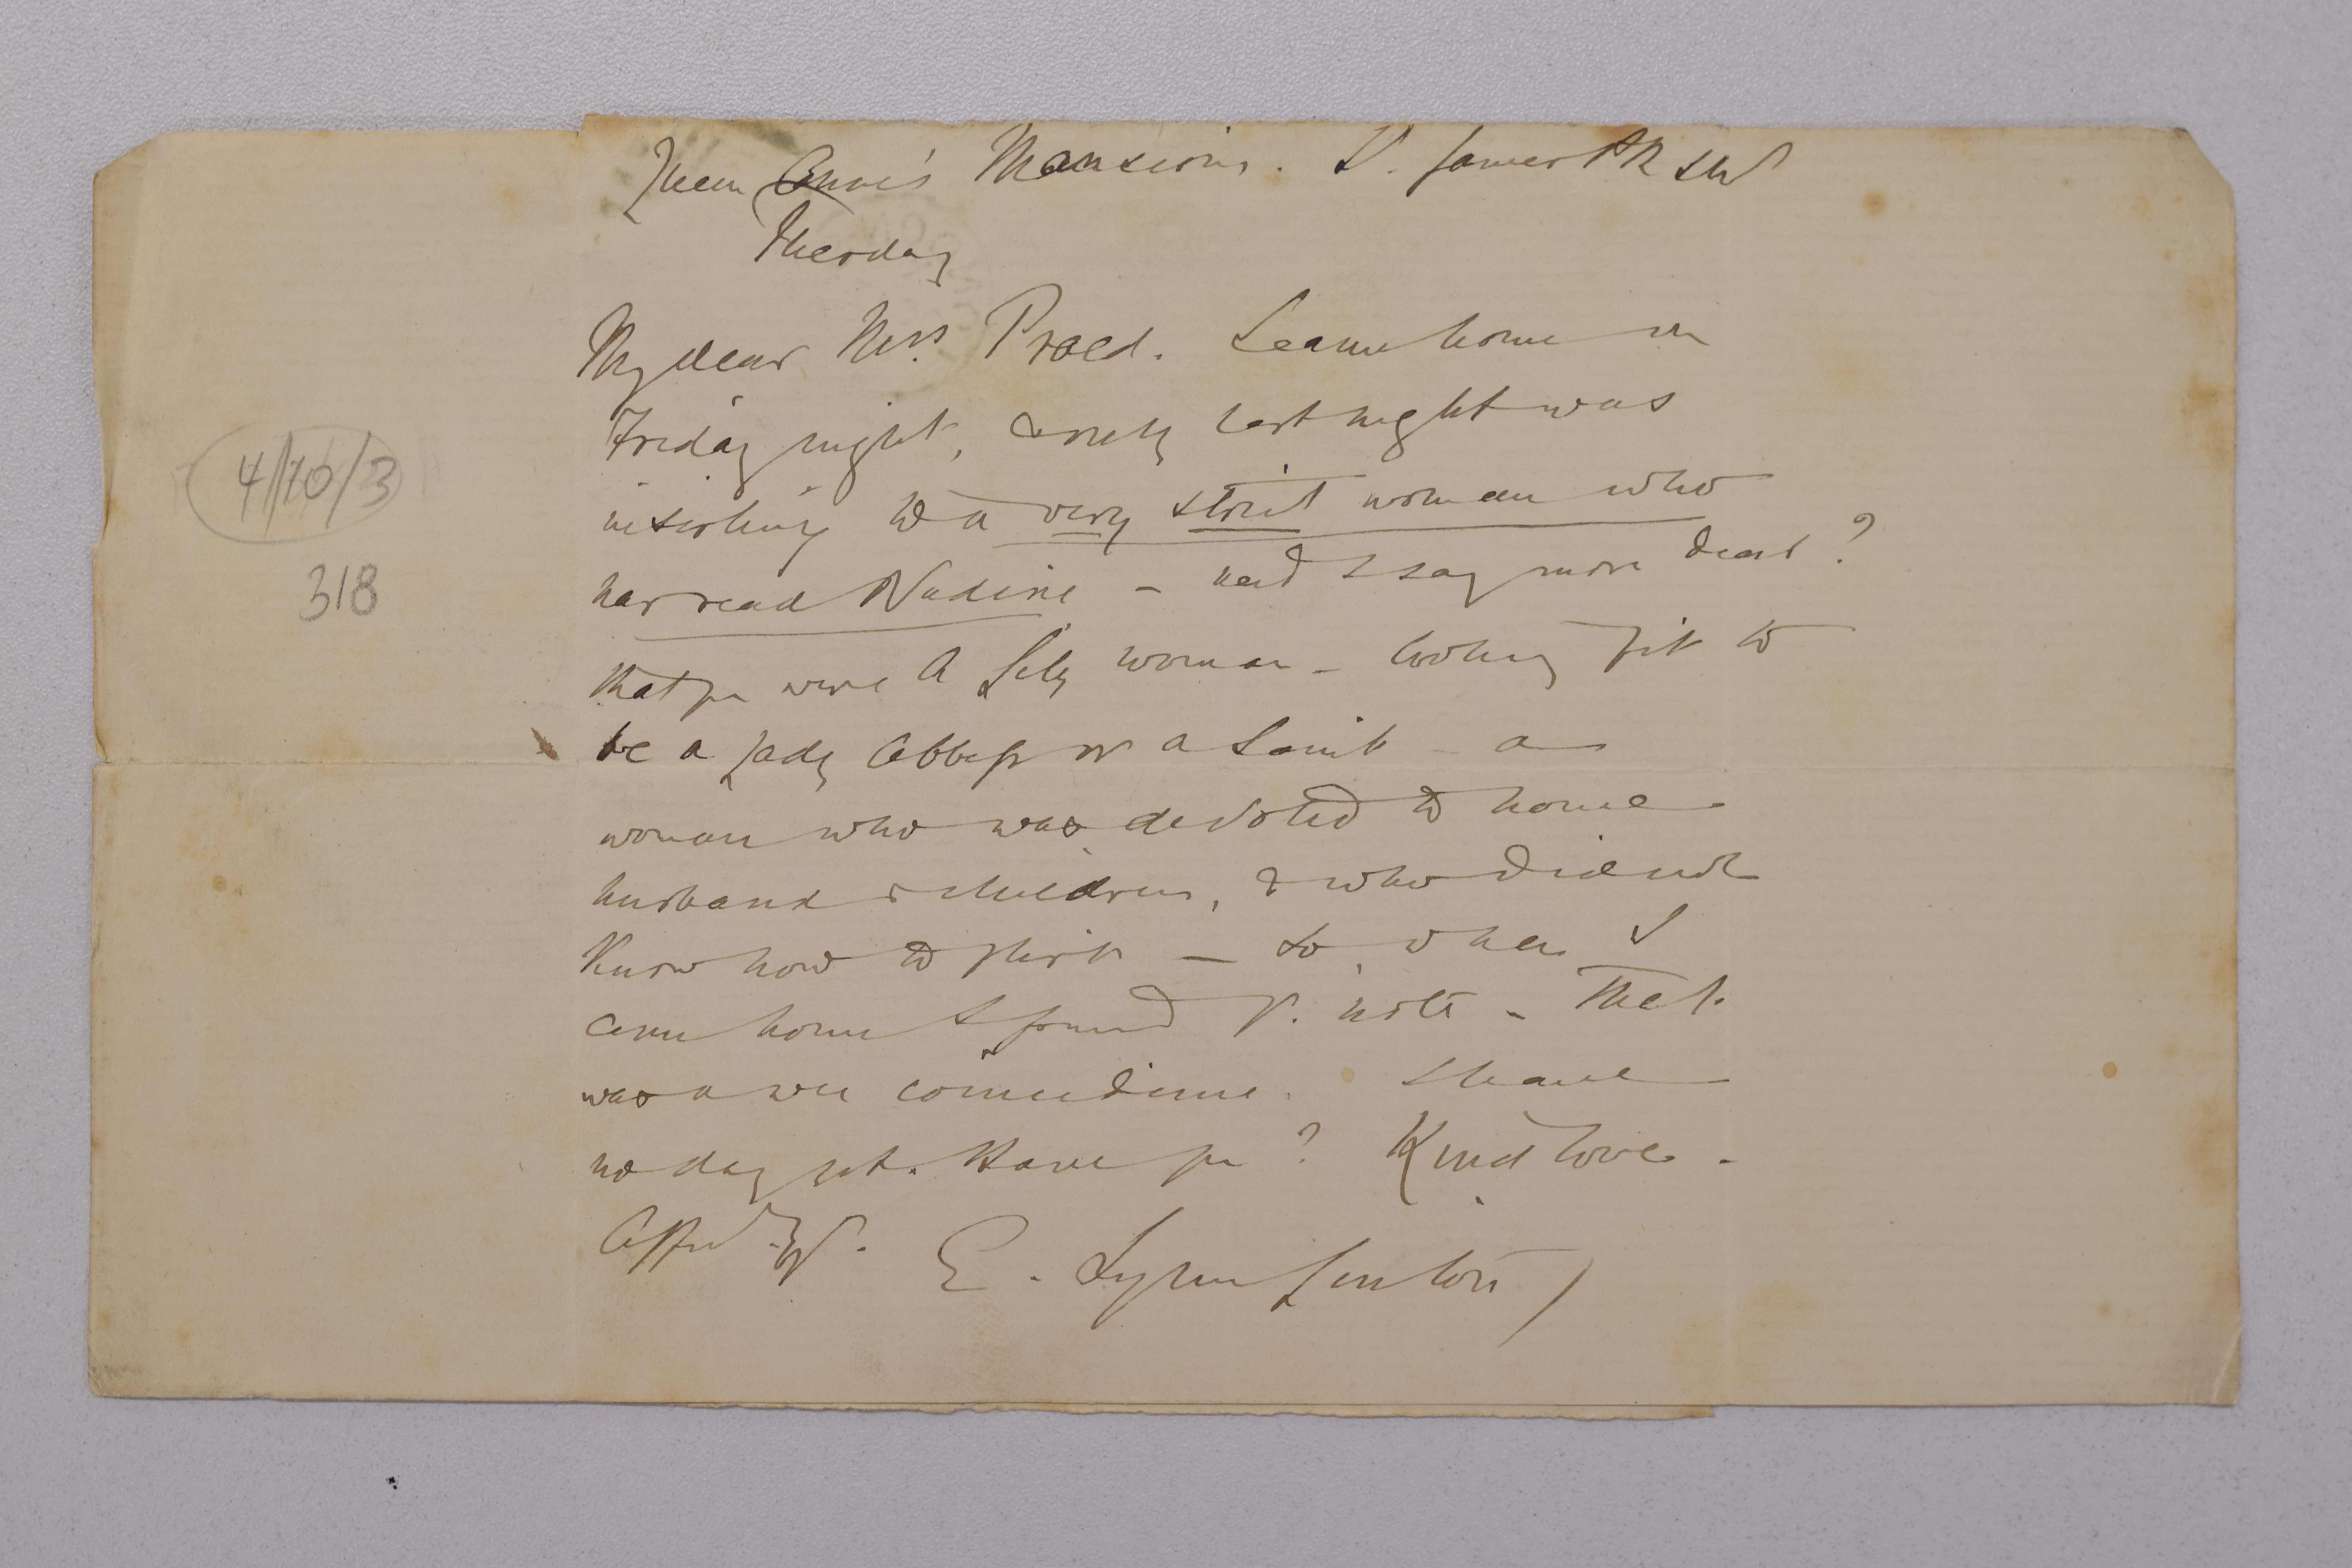 Queen Anne's Mansions. St. James Pk SW
Tuesday
My dear Mrs. Praed. I came home on
Friday night, & only last night was
insisting to a very strict woman who
has read Nadine – need I say more dear?
that you were a lily woman – looking fit to
be a Lady Abbess or a Saint – a
woman who was devoted to home
husband & children, & who did not
know how to flirt – So when I
came home I found yr. note – That
was a wee coincidence. I have
no day yet. Have you? Kind love.
Affectly yr.
E. Lynn Linton
4/10/3
318